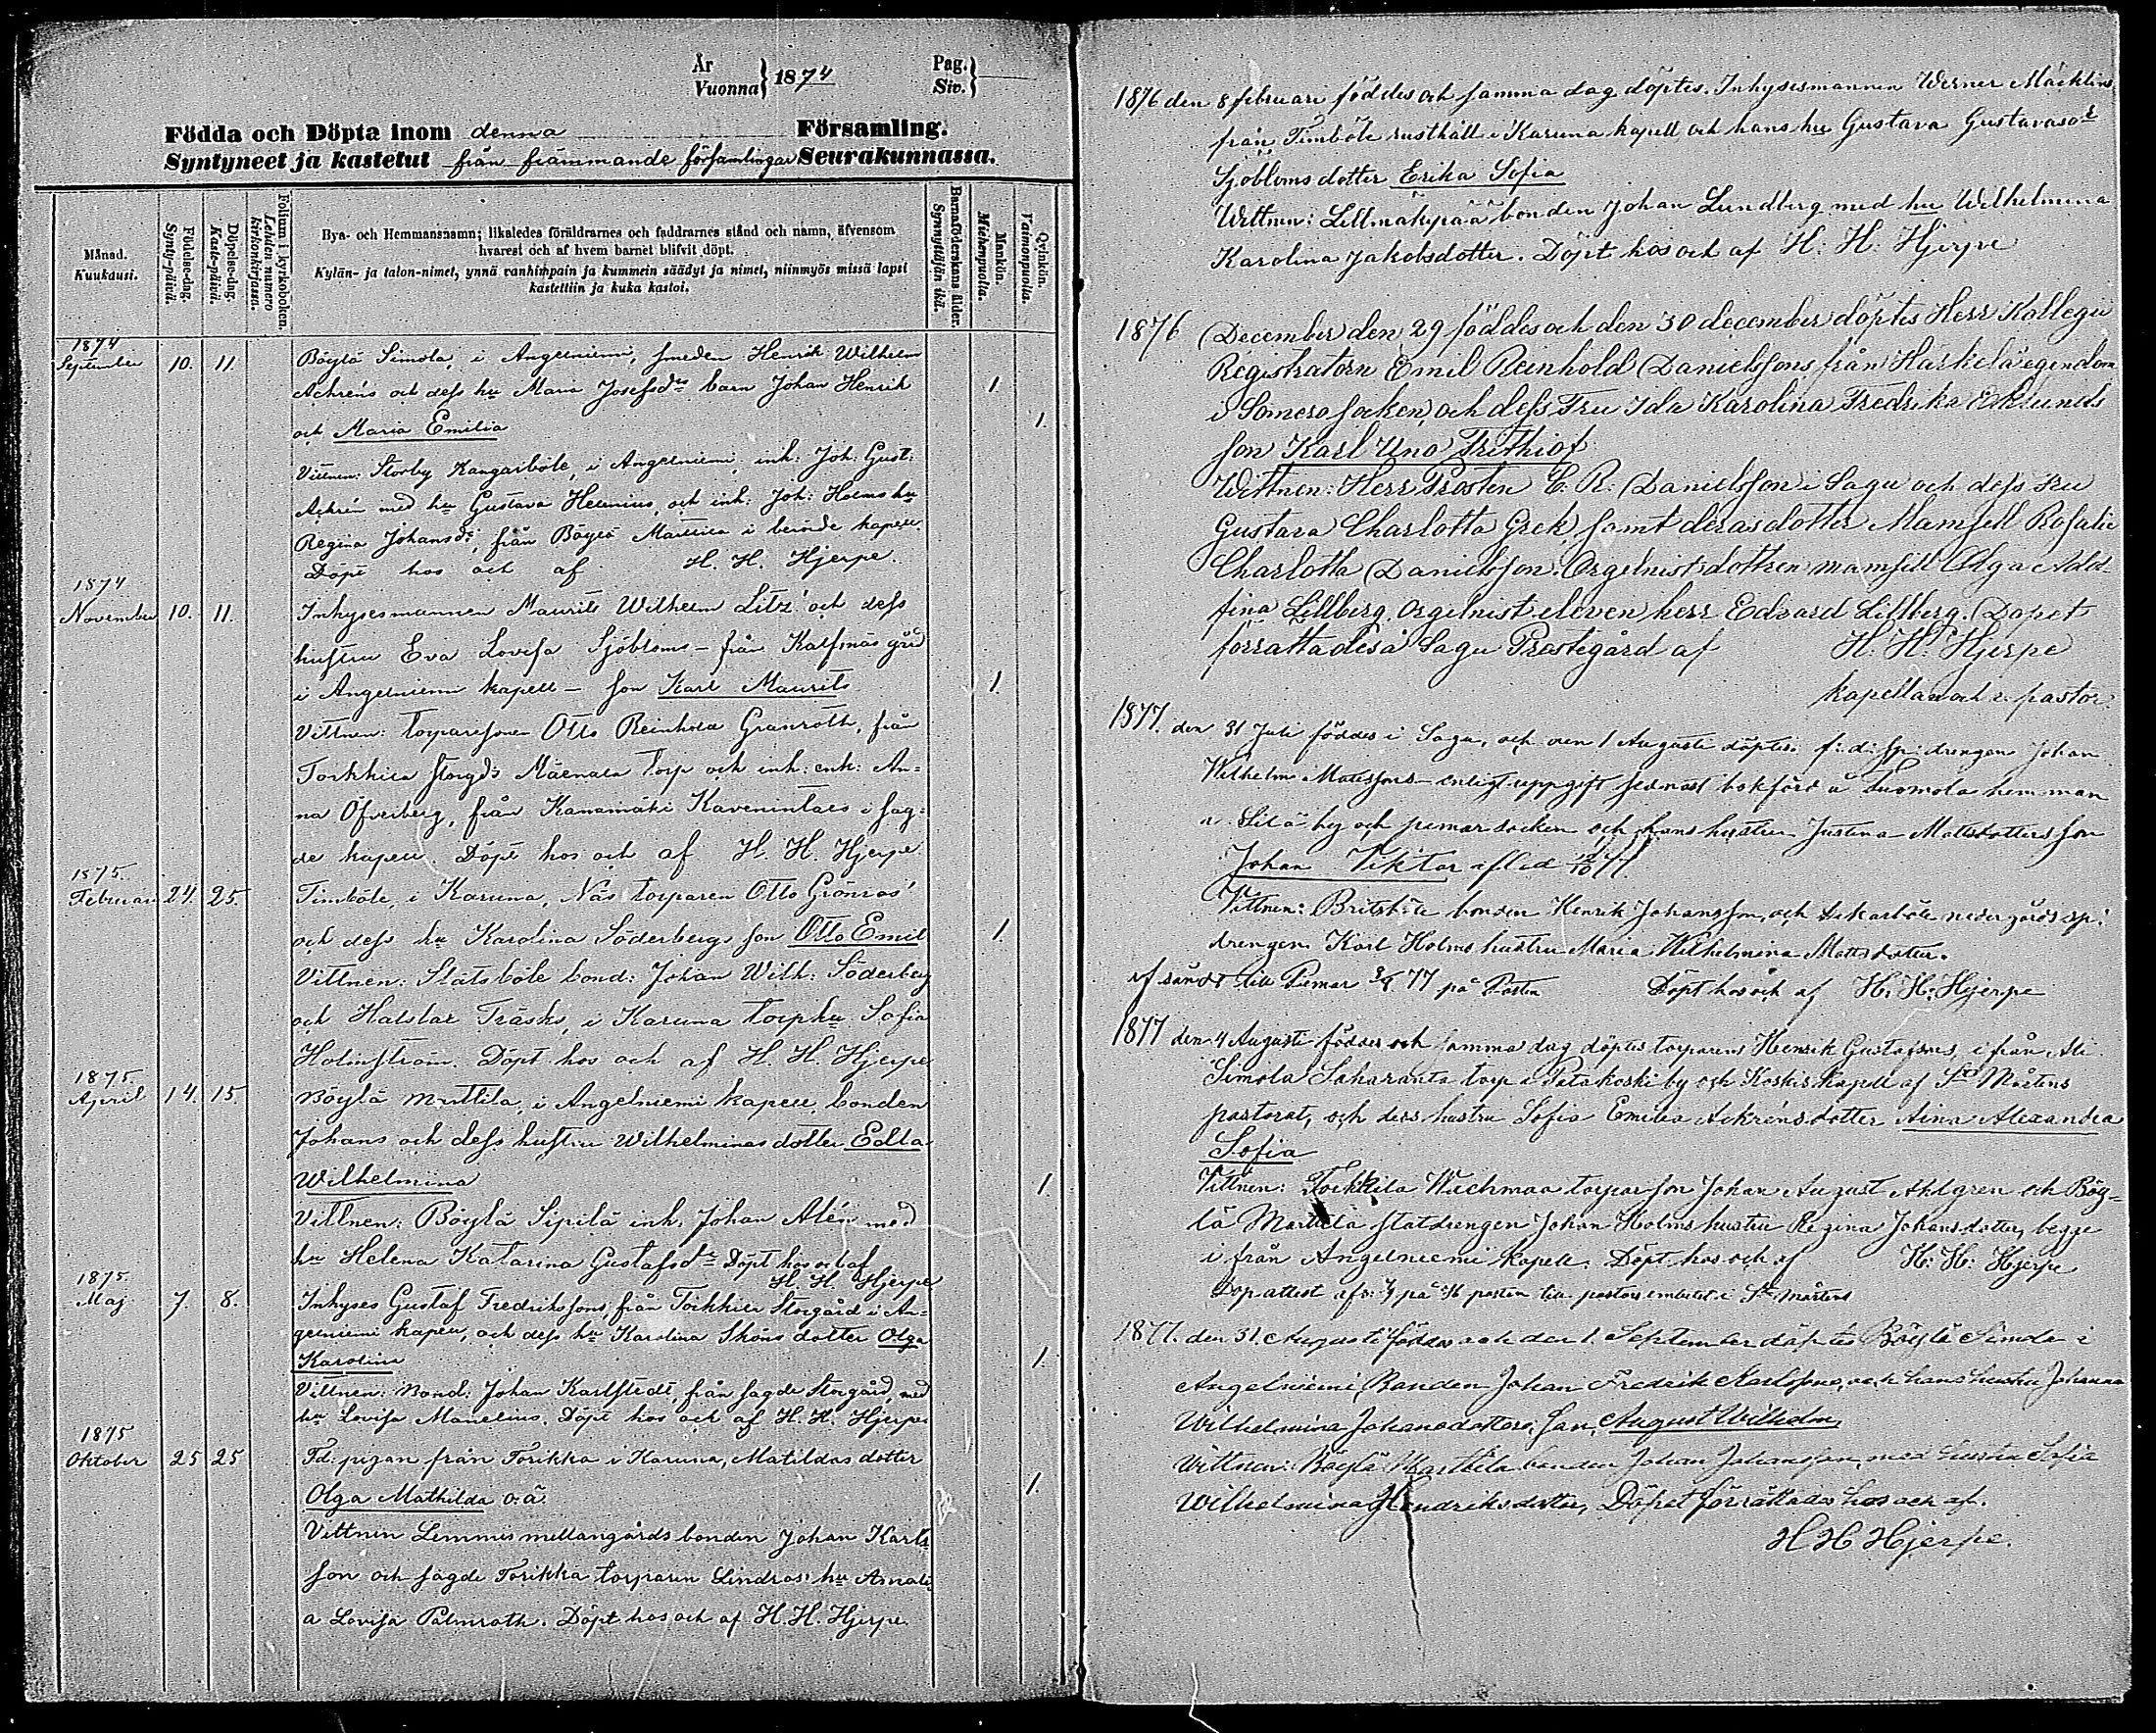 År
Vuonna } 1874
Pag.
Siv. }
Födda och Döpta inom denna Församling.
Syntyneet ja kastetut från främmande församlingar Seurakunnassa.
Månad.
Kuukausi.
Födelse-dag.
Synty-päivä.
Döpelse-dag.
Kaste-päivä.
Folium i kyrkoboken.
Lehden numero kirkonkirjassa.
Bya- och Hemmansnamn; likaledes föräldrarnes och faddrarnes stånd och namn, äfvensom
hvarest och af hvem barnet blifvit döpt.
Kylän- ja talon-nimet, ynnä vanhimpain ja kummein säädyt ja nimet, niinmyös missä lapsi
kastettiin ja kuka kastoi.
Barnaföderskans ålder.
Synnyttäjän ikä.
Mankön.
Miehenpuolia.
Qvinkön.
Vaimonpuolia.
1874
September 10. 11. Böylä Simola, i Angelniemi, smeden Henrik Wilhelm
Achréns och dess hu Maria Josefsdrs barn Johan Henrik 1.
och Maria Emilia 1.
Vittnen: Storby Kangarböle, i Angelniemi, inh: Joh: Gust:
Achrén med hu Gustava Helenius, och inh: Joh: Holms hu
Regina Johansdr, från Böylä Marttila i berörde kapell
Döpt hos och af H. H. Hjerpe.
1874
November 10. 11. Inhysesmannen Maurits Wilhelm Litz' och dess
hustru Eva Lovisa Sjöbloms – från Kalfsnäs gård
i Angelniemi kapell – son Karl Maurits 1.
Vittnen: torparesonen Otto Reinhold Granroth, från
Toikkila storgds Mäenala torp och inh: enk: An=
na Öfverberg, från Kanamäki Kavenintalo i sag=
de kapell. Döpt hos och af H. H. Hjerpe
1875.
Februari 24. 25. Timböle, i Karuna, Näs torparen Otto Grönros'
och dess hu Karolina Söderbergs son Otto Emil 1.
Vittnen: Slätsböle bond: Johan Wilh: Söderberg
och Halslar Träsks, i Karuna torphu Sofia
Holmström. Döpt hos och af H. H. Hjerpe
1875.
April 14. 15. Böylä Marttila, i Angelniemi kapell, bonden
Johans och dess hustru Wilhelminas dotter Edla
Wilhelmina 1.
Vittnen: Böylä Sipilä inh. Johan Alén med
hu Helena Katarina Gustafsdr Döpt hos och af
H. H. Hjerpe
1875.
Maj 7. 8. Inhyses Gustaf Fredrikssons, från Toikkila Storgård i An=
gelniemi kapell, och dess hu Karolina Sköns dotter Olga
Karolina 1.
Vittnen: Bond: Johan Karlstedt, från sagde Storgård, med
hu Lovisa Manelius. Döpt hos och af H. H. Hjerpe
1875
Oktober 25 25 Fd: pigan från Torikka i Karuna, Matildas dotter
Olga Mathilda o.ä. 1.
Vittnen Lemmis mellangårds bonden Johan Karls
son och sagde Torikka torparen Lindros' hu Amali
a Lovisa Palmroth. Döpt hos och af H. H. Hjerpe.
1876 den 8 februari föddes och samma dag döptes. Inhysesmannen Werner Mäcklins
från Timböle rusthåll i Karuna kapell och hans hu Gustava Gustavasdr
Sjobloms dotter Erika Sofia
Wittnen: Lillmälkypää bonden Johan Lundberg med hu Wilhelmina
Karolina Jakobsdotter. Döpt hos och af H: H: Hjerpe
1876 December den 29 föddes och den 30 december döptes Herr Kollegii
Registratorn Emil Reinhold Danielssons från Härkelä egendom
i Somero socken, och dess Fru Ida Karolina Fredrika Eklunds
son Karl Uno Frithiof
Wittnen: Herr Prosten C. R. Danielsson i Sagu och dess Fru
Gustava Charlotta Grek samt deras dotter Mamsell Rosalie
Charlotta Danielsson. Orgelnistdottren mamsell Olga Adol-
fina Lillberg, orgelnist eleven herr Edvard Lillberg. Dopet
förrättades å Sagu Prostegård af H. H. Hjerpe
kapellan och v. pastor.
1877. den 31 Juli föddes i Sagu, och den 1 Augusti döptes f: d: sp: drengen Johan
Wilhelm Matssons – enligt uppgift sednast bokförd å Tuomola hemman
af by och pemar socken och hans hustru Justina Mattsdotters son
Johan Viktor
Vittnen: Britsböle bonden Henrik Johansson, och nedergårds sp:
drengen Karl Holms hustru Maria Wilhelmina Mattsdotter.
af sändt till Pemar 3/8 77 på Posten Döpt hos och af H: H: Hjerpe
1877 den 4 Augusti föddes och samma dag döptes torparens Henrik Gustafssons, i från Ali
Simola Saharanta torp i Patakoski by och Koskis kapell af St Mårtens
pastorat, och dess hustru Sofia Emilia Achréns dotter Aina Alexandra
Sofia
Vittnen: Toikkila Wuohmaa torparson Johan August Ahlgren och Böy=
lä Marttila statdrengen Johan Holms hustru Regina Johansdotter, begge
i från Angelniemi kapell. Döpt hos och af H: H: Hjerpe
Dop attest på posten till pastors embetet i St Mårtens
1877. den 31. Augusti föddes och den 1. September döptes Böylä Simola i
Angelniemi, Bonden Johan Fredrik Karlssons, och hans hustru Johanna
Wilhelmina Johansdotters, son, August Wilhelm
Wittnen: Böylä Marttila bonden Johan Johansson, med hustru Sofia
Wilhelmina Hendriksdotter, Döpet förrättades hos och af.
H H Hjerpe.